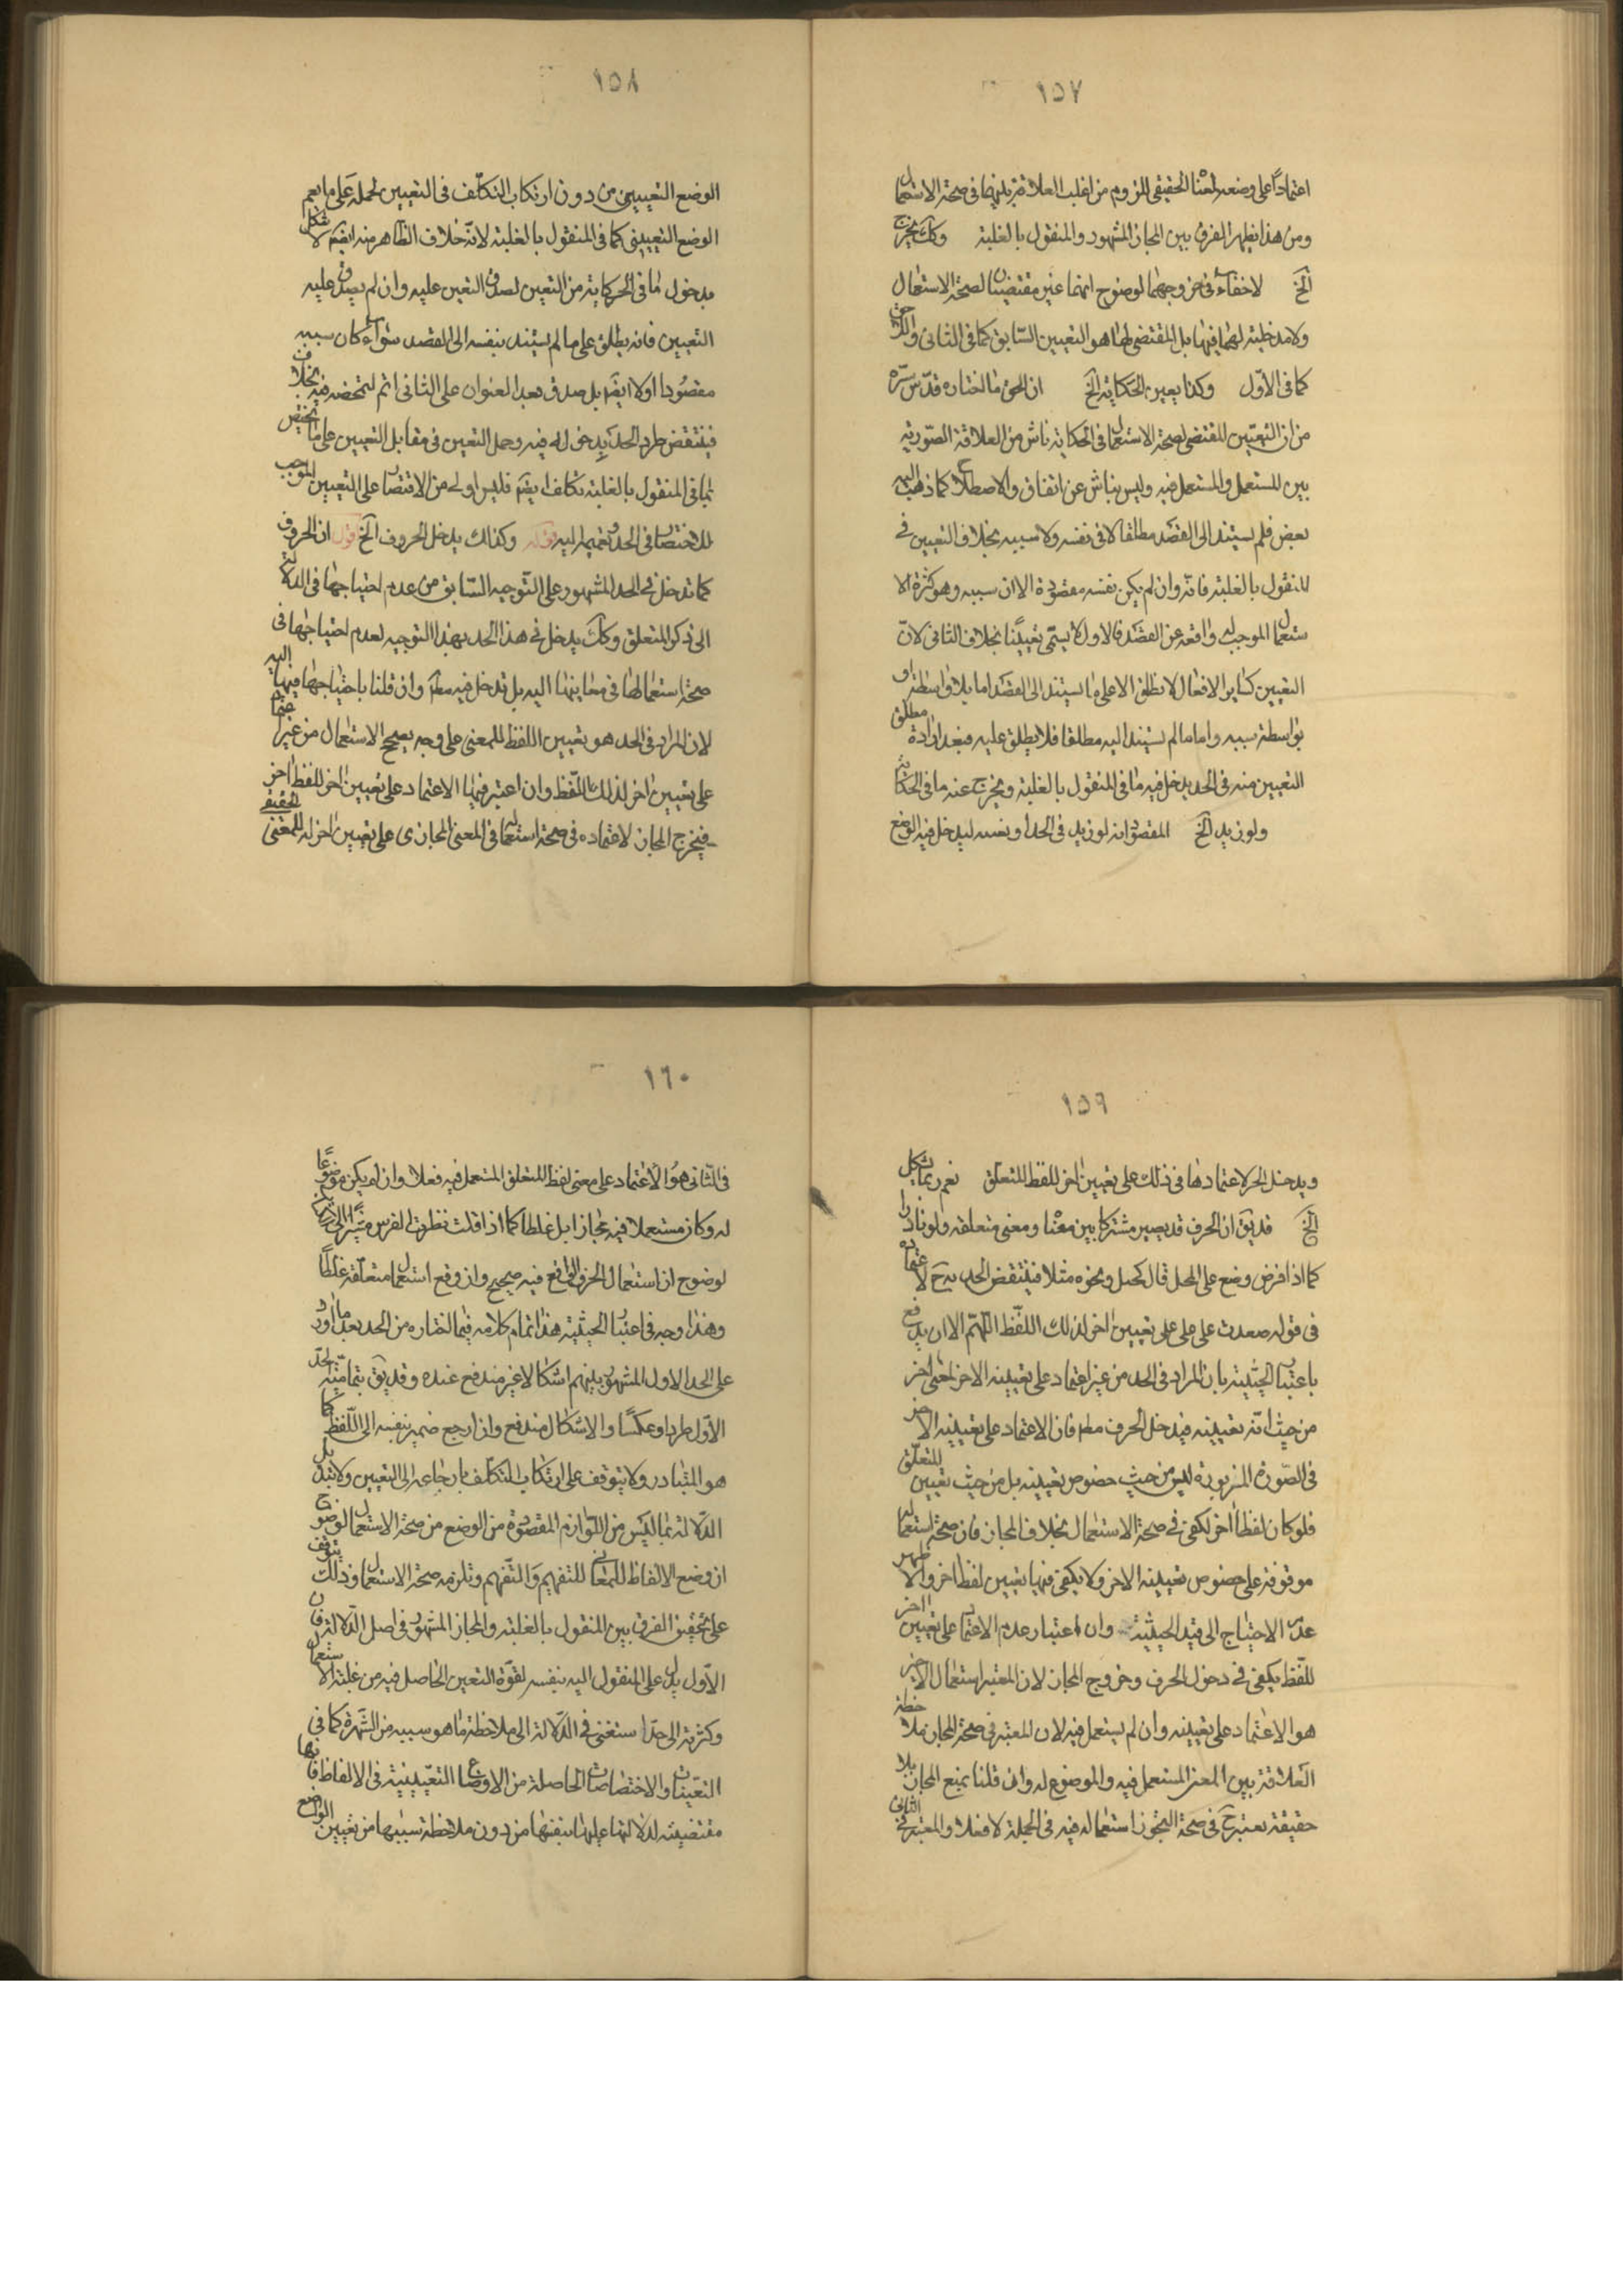 ١٥٧
اعتمادًا على وضعه لمعنا الحقيقى للزوم من اغلب العلاقة بينهما فى صحة الاستعمال
ومن هذا يظهر الفرق بين المجاز المشهود والمنقول بالغلبة وكك يخرج
الخ لا خفاء فى خروجهما لوضوح انهما غير مقتضيين لصحة الاستعمال
ولا مدخلية لهما فيها بل المقتضى لها هو التعيين السابق كما فى الثانى واللاحق
كما فى الاول وكذا يعين الحكاية الخ ان الحق ما اختاره قدس سره
من ان التعيين المقتضى لصحة الاستعمال فى الحكاية ناش من العلاقة الصورية
بين المستعمل والمستعمل فيه وليس بناش عن اتفاق والاصطلاح كما ذهب اليه
بعض فلم يستند الى القصد مطلقا لا فى نفسه ولا سببه بخلاف التعيين فى
المنقول بالغلبة فانه وان لم يكن نفسه مقصودة الا ان سببه وهو كثرة الا
ستعمال الموجب له واقعة عن القصد فالاول لا يسمى تعيينًا بخلاف الثانى لان
التعيين كساير الافعال لا يطلق الا على ما يستند الى القصد اما بلا واسطة او
بواسطة سببه واما ما لم يستند اليه مطلقا فلا يطلق عليه فبعد ارادة مطلق
التعيين منه فى الحد يدخل فيه ما فى المنقول بالغلبة ويخرج عنه ما فى الحكاية
ولو زيد الخ المقصود انه لو زيد فى الحد او بسببه ليدخل فيه الوضع
١٥٨
الوضع التعيينى من دون ارتكاب التكلف فى التعيين لحمله على ما يعم
الوضع التعيينى كما فى المنقول بالغلبة لانه خلاف الظاهر منه ايضم لا شكل
بدخول ما فى الحركاية من التعين لصدق التعين عليه وان لم يصدق عليه
التعيين فانه يطلق على ما لم يستند بنفسه الى القصد سواء كان سببه
مقصودا اولا ايضم بل صدق بعد العنوان على الثانى اتم لتمحضه فيه بخلاف
فينتقض طرد الحد بدخوله فيه وحمل التعين فى مقابل التعيين على ما يختص
بما فى المنقول بالغلبة تكلف ايضم فليس اولى من الاقتصار على التعيين الموجب
للاختصار فى الحد وتعميمه اليه قوله وكذلك يدخل الحروف الخ قول ان الحروف
كما تدخل فى الحد المشهور على التوجيه السابق من عدم احتياجها فى الدلالة
الى ذكر المتعلق وكك يدخل فى هذا الحد بهذا التوجيه لعدم احتياجها فى
صحة استعمالها فى معاينها اليه بل تدخل فيه مطم وان قلنا باحتياجها فيها اليه
لان المراد فى الحد هو تعيين اللفظ للمعنى على وجه يصح الاستعمال من غير اعتماد
على تعيين اخر لذلك اللفظ وان اعتبر فيها الاعتماد على تعيين اخر للفظ اخر
فيخرج المجاز لاعتماده فى صحة استعماله فى المعنى المجازى على تعيين اخر له للمعنى الحقيقى
١٥٩
ويدخل الحرف لاعتمادها فى ذلك على تعيين اخر للفظ المتعلق نعم ربما يشكل
الخ قد يق ان الحرف قد يصير مشتركا بين معنا ومعنى متعلقه ولو نادرا
كما اذا فرض وضع على للحبل قال كحبل ونحوه مثلا فينتقض الحد به ح لاعتماده
فى قوله صعدت على على على تعيين اخر لذلك اللفظ اللهم الا ان يدفع
باعتبار الحيثية بان المراد فى الحد من غير اعتماد على تعيينه الاخر لمعنى اخر
من حيث انه تعيينه فيدخل الحرف مطم فان الاعتماد على تعيينه الاخر
فى الصورة المزبورة ليس من حيث خصوص تعيينه بل من حيث تعيين المتعلق
فلو كان لفظا اخر لكفى فى صحة الاستعمال بخلاف المجاز فان صحة استعماله
موقوفة على خصوص تعيينه الاخر ولا يكفى فيها تعيين لفظ اخر والاظهر
عدم الاحتياج الى قيد الحيثية وان اعتبار عدم الاعتماد على تعيين اخر
للفظ يكفى فى دخول الحرف وخروج المجاز لان المعتبر استعمال الاخير
هو الاعتماد على تعيينه وان لم يستعمل فيه لان المعتبر فى صحة المجاز ملاحظة
العلاقة بين المعنى المستعمل فيه والموضوع له وان قلنا بمنع المجاز بلا
حقيقة يعتبر ح فى صحة التجوز استعماله فيه فى الجملة لا فعلا والمعتبر فى الثانى
١٦٠
فى الثانى هو الاعتماد على معنى لفظ المتعلق المستعمل فيه فعلا وان لم يكن موضوعًا
له وكان مستعملا فيه مجازا بل غلطا كما اذا قلت نظرت الفرس مشيرًا الى
لوضوح ان استعمال الحرف الواقع فيه صحيح وان وقع استعمال متعلقه غلطًا
وهذا وجه فى اعتبار الحيثية هذا تمام كلامه فيما اختاره من الحد بعد ما اورد
على الحد الاول المشهور بينهم اشكالا غير مندفع عنده وقد يق بتمامية الحد
الاول طردا وعكسًا والاشكال مندفع وان ارجع ضمير بنفسه الى اللفظ كما
هو المتبادر ولا يتوقف على ارتكاب التكلف بارجاعه الى التعيين ولا بتبديل
الدلالة بما ليس من اللوازم المقصودة من الوضع من صحة الاستعمال لوضوح
ان وضع الالفاظ للمعانى للتفهيم والتفهم وتلزمه صحة الاستعمال وذلك يتوقف
على تحقيق الفرق بين المنقول بالغلبة والمجاز المشهور فى اصل الدلالة فان
الاول يدل على المنقول اليه بنفسه لقوة التعين الحاصل فيه من غلبة الاستعمال
وكثرته الى حد استغنى فى الدلالة الى ملاحظة ما هو سببه من الشهرة كما فى
التعينات والاختصاصات الحاصلة من الاوضاع التعيينية فى الالفاظ فانها
مقتضية لدلالتها عليها بنفسها من دون ملاحظة سببها من تعيين الواضع